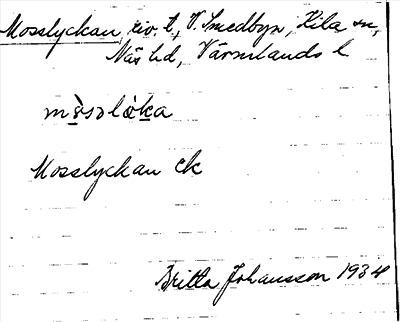 Mosslyckan, riv. t., V. Smedbyn, Kila sn,
Näs hd, Värmlands l
mòsɔlɔ̀ka
Mosslyckan ek
Britta Johansson 1934